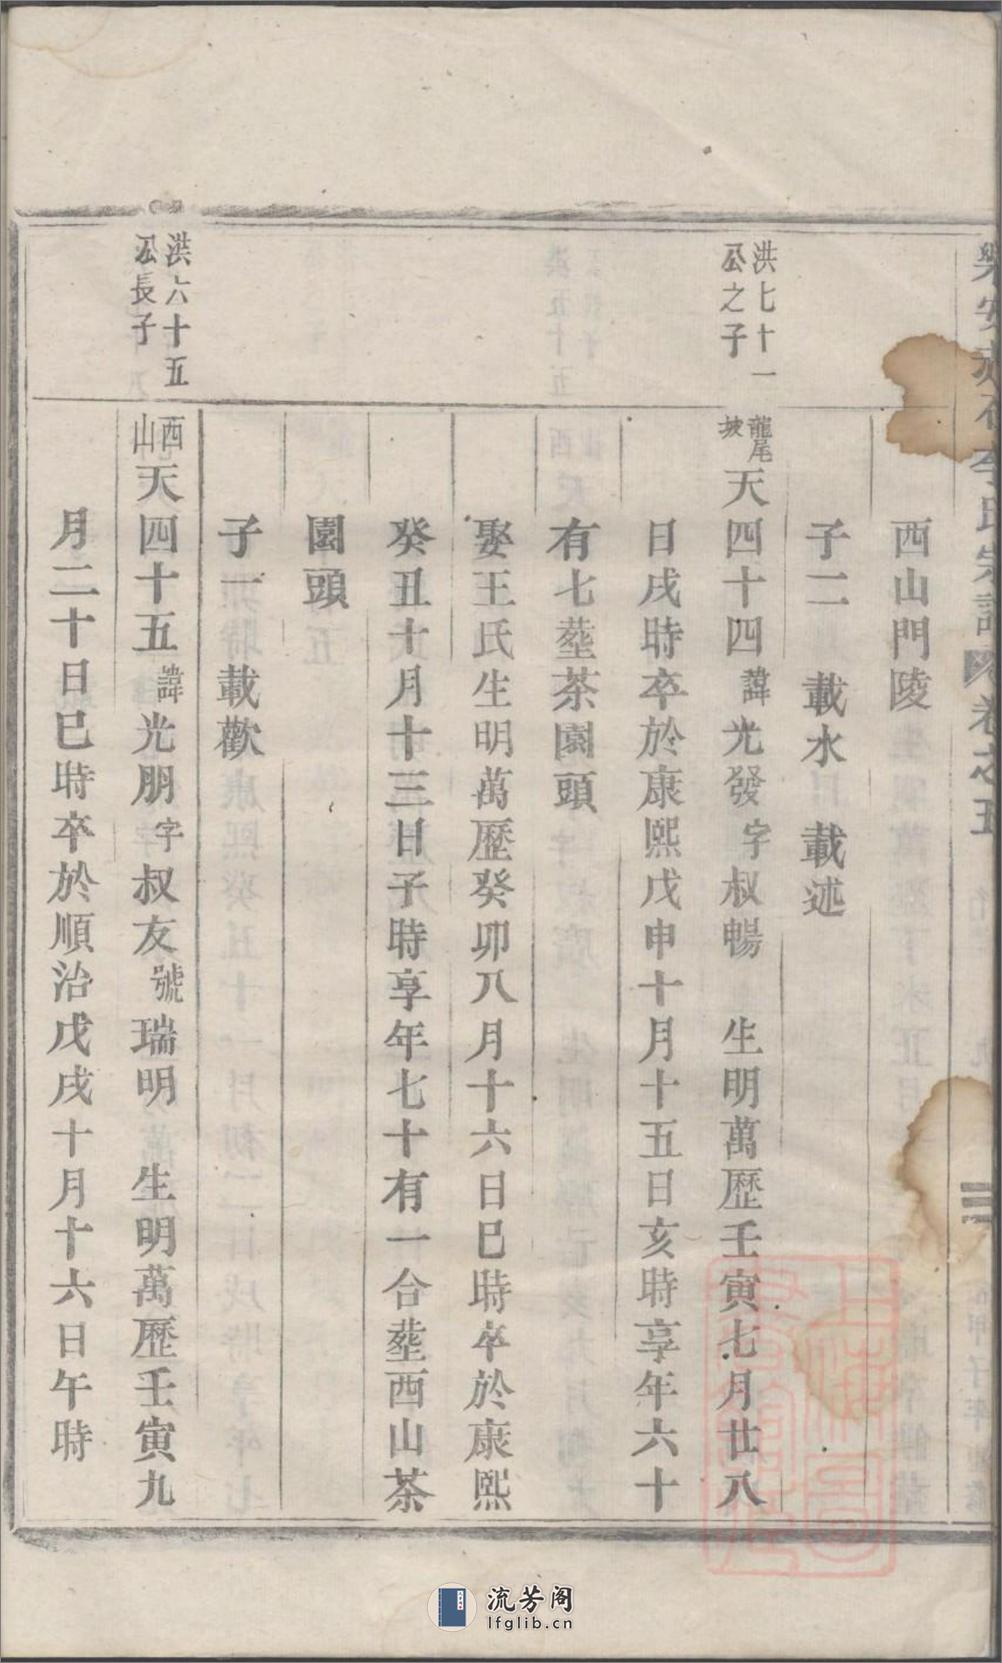 樂安 李氏宗譜 卷之五
西山門陵
子二 載水 載述
洪七十一公之子
龍尾坡 天四十四 諱光發 字叔暢 生明萬歷壬寅七月廿八
日戌時卒於康熙戊申十月十五日亥時享年六十
有七塟茶園頭
娶王氏生明萬歷癸卯八月十六日巳時卒於康熙
癸丑十月十三日子時享年七十有一合塟西山茶
園頭
子一 載歡
洪六十五公長子
西山 天四十五 諱光朋 字叔友 號瑞明 生明萬歷壬寅九
月二十日巳時卒於順治戊戌十月十六日午時
流芳阁
lfglib.cn